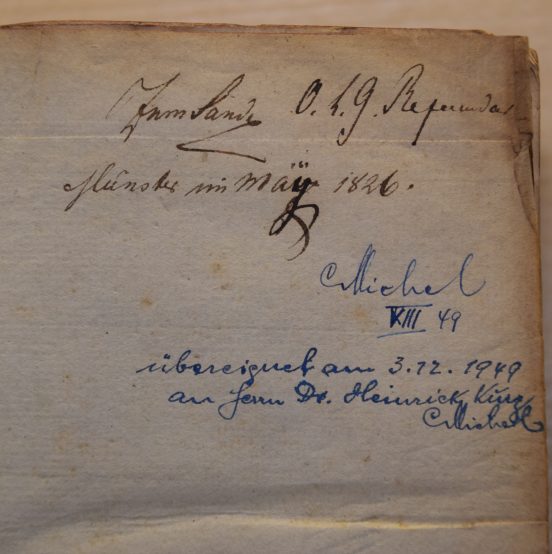 Zum Sande O. L. G. Referendar
Münster im Maÿ 1826.
Michel
VIII 49
übereignet am 3.12.1949
an Herrn Dr. Heinrich King
Michel